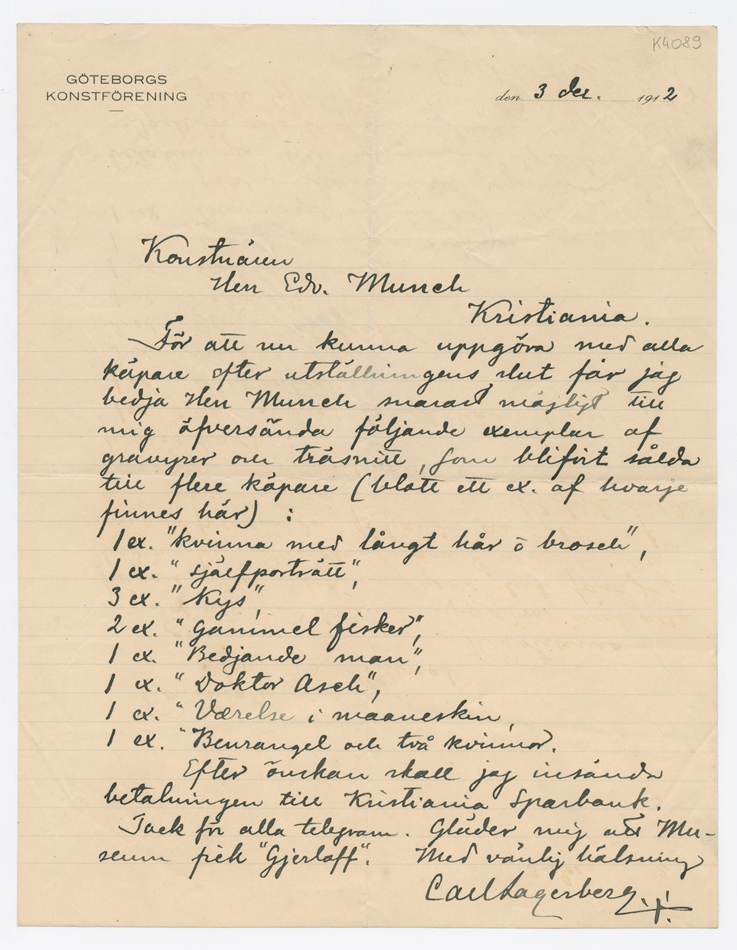 K4089
GÖTEBORGS
KONSTFÖRENING
den 3 Dec. 1912
Konstnären
Herr Edv. Munch
Kristiania.
För att nu kunna uppgöra med alla
köpare efter utställningens slut får jag
bedja Herr Munch snarast möjligt till
mig öfversända följande exemplar af
gravyrer och träsnitt, som blifvit sålda
till flere köpare (blott ett ex. af hvarje
finnes här) :
1 ex. "Kvinna med långt hår o brosch",
1 ex. "självporträtt",
3 ex. "Kys",
2 ex. "Gammel fisker",
1 ex. "Bedjande man",
1 ex. "Doktor Asch",
1 ex. "Værelse i maaneskin,
1 ex. "Benrangel och två kvinnor.
Efter önskan skall jag insända
betalningen till Kristiania Sparbank.
Tack för alla telegram. Gläder mig att Mu-
seum fick "Gjerløff". Med vänlig hälsning
Carl Lagerberg